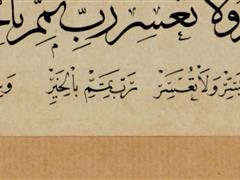 ولا تعسر رب تمم با
يسر ولا تعسر رب تمم بالخير